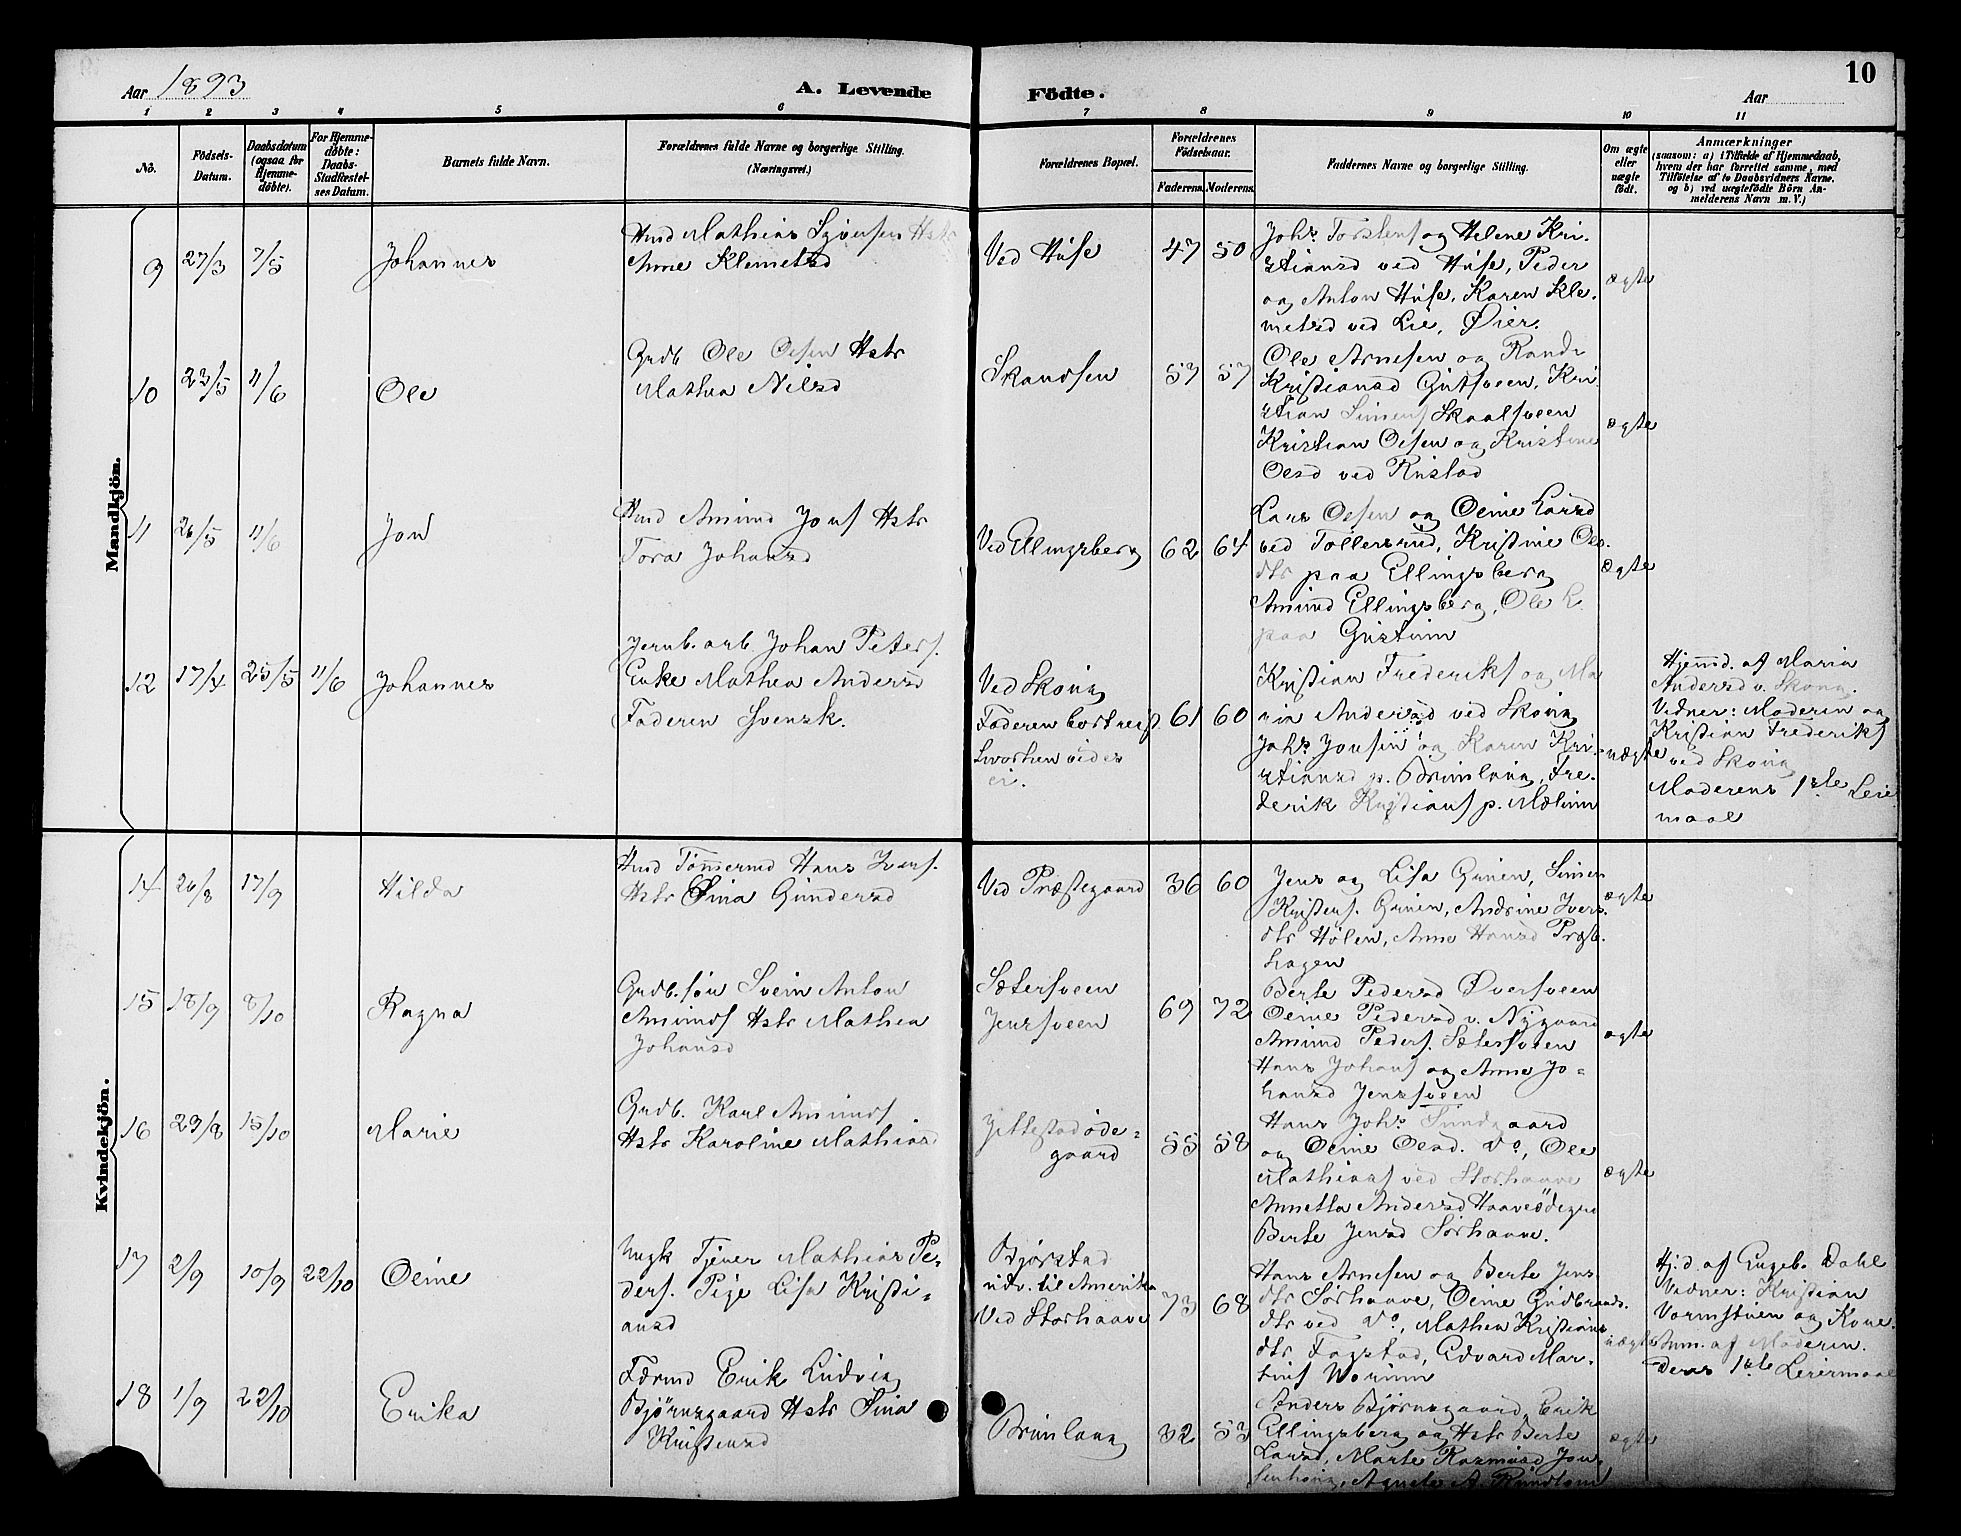 10
Aar 1893
A. Levende Födte.
Aar
1 2 3 4 5 6 7 8 9 10 11
No.
Födsels-Datum.
Daabsdatum (ogsaa for Hjemmedöbte).
For Hjemmedöbte: Daabs-Stadfæstelses Datum.
Barnets fulde Navn.
Forældrenes fulde Navne og borgerlige Stilling.
(Næringsvei.)
Forældrenes Bopæl.
Forældrenes Födselsaar.
Faderens. Moderens.
Faddernes Navne og borgerlige Stilling.
Om ægte eller uægte födt.
Anmærkninger
(saasom: a) i Tilfælde af Hjemmedaab, hvem der har forrettet samme, med Tilföielse af to Daabsvidners Navne. og b) ved uægtefödte Börn Anmelderens Navn m. V.)
Mandkjön.
9 27/3 7/5 Johannes
Hmd Mathias Syvensen Hstr
Anne Klemetsd
Ved Huse 47 50
Johs Torstens og Helene Kri-
stiansd ved Huse, Peder
og Anton Huse, Karen Kle-
metsd ved Lie, Øier.
ægte
10 23/5 11/6 Ole
Grdb Ole Olsen Hstr
Mathea Nilsd
Skandsen 57 57
Ole Arnesen og Randi
Kristiansd Gutsveen, Kri-
stian Simens Skaalsveen
Kristian Olsen og Kristine
Olsd ved Rustad
ægte
11 26/5 11/6 Jon
Hmd Amund Jons Hstr
Tora Johansd
Ved Ellingsberg 62 64
Lars Olsen og Oline Larsd
ved Tollersrud, Kristine Ols-
dtr paa Ellingsberg
Amund Ellingsberg, Ole L.
paa Gustum
ægte
12 17/4 25/5 11/6 Johannes
Jernb. arb Johan Peters.
Enke Mathea Andersd
Faderen Svensk.
Ved Skoug
Faderen bortreist
hvorhen vides
ei.
61 60
Kristian Frederiks og Ma
ria Andersd ved Skoug
Johs Jonsen og Karen Kri-
stiansd p. Brunlaug, Fre-
derik Kristians p. Mælum
uægte
Hjemmd. af Maria
Andersd v. Skoug.
Vidner: Moderen og
Kristian Frederiks
ved Skoug
Moderens 1ste Leier
maal
Kvindekjön.
14 26/8 17/9 Hilda
Hmd Tömmermd Hans Ivers.
Hstr Sina Gundersd
Ved Præstegaard 36 60
Jens og Lisa Grinen, Simen
Kristens. Grinen, Andrine Ivers-
dtr Hølen, Anne Hansd Præst-
hagen
ægte
15 18/9 8/10 Ragna
Grdb.søn Svein Anton
Amunds Hstr Mathea
Johansd
Sætersveen
Jensveen
69 72
Berte Pedersd Øversveen
Oline Pedersd v. Nygaard
Amund Peders. Sætersveen
Hans Johans og Anne Jo-
hansd Jensveen
ægte
16 29/8 15/10 Marie
Grdb. Karl Amunds
Hstr Karoline Mathiasd
Jettestadøde-
gaard
55 58
Hans Johs Sundgaard
og Oline Olsd. Do, Ole
Mathias ved Storhaave
Annetta Andersd Haaveödegrd
Berte Jensd Sørhaave.
ægte
17 2/9 10/9 22/10 Oline
Ungk Tjener Mathias Pe-
ders. Pige Lisa Kristi-
ansd
Bjørstad
udv. til Amerika
Ved Storhaave
73 68
Hans Arnesen og Berte Jens-
dtr Sørhaave, Oline Gudbrands-
dtr ved Do, Mathea Kristians-
dtr Fagstad, Edvard Mar-
tins
uægte
Hj.d. af Engeb. Dahl
Vidner: Kristian
Vormstuen og Kone.
Anm. af Moderen.
deres 1ste Leiermaal
18 1/9 22/10 Erika
Erik Ludvig
Bjørnsgaard Hstr Sina
Kristensd
Brunlaug 32 53
Anders Bjørnsgaard, Erik
Ellingsberg og Hstr Berte
Larsd, Marte Rasmusd Jon-
ægte